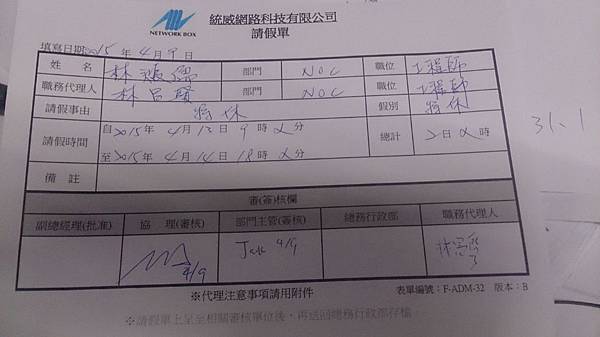 NETWORK BOX
統威網路科技有限公司
請假單
填寫日期2015年4月9日
姓 名 林 部門 NOC 職位 工程師
職務代理人 林呂賢 部門 NOC 職位 工程師
請假事由 特休 假別 特休
請假時間 自2015年4月13日9時 分
至2015年4月14日18時 分
總計 2日 時
備 註
審(簽)核欄
副總經理(批准) 協 理(審核) 部門主管(簽核) 總務行政部 職務代理人
4/9 Jack 4/9 林呂賢
※代理注意事項請用附件
表單編號:F-ADM-32 版本:B
※請假單上呈至相關審核單位後,再送回總務行政部存檔。